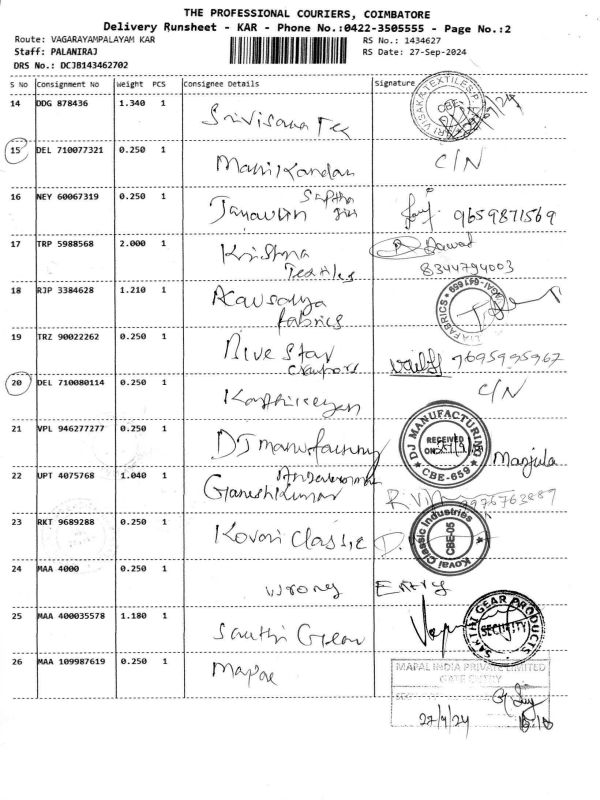 THE PROFESSIONAL COURIERS, COIMBATORE
Delivery Runsheet - KAR - Phone No.:0422-3505555 - Page No.:2
Route: VAGARAYAMPALAYAM KAR RS No.: 1434627
Staff: PALANIRAJ RS Date: 27-Sep-2024
DRS No.: DCJB143462702
S No Consignment No Weight PCS Consignee Details Signature
14 DDG 878436 1.340 1
SRI VISAKA TEXTILES CBE
15 DEL 710077321 0.250 1 Manikandan C/N
16 NEY 60067319 0.250 1 9659871569
17 TRP 5988568 2.000 1 Krishna Textiles
8344794003
18 RJP 3384628 1.210 1 Kausalya fabrics
FABRICS 641 659
19 TRZ 90022262 0.250 1 Five Star
20 DEL 710080114 0.250 1 Karthikeyan C/N
21 VPL 946277277 0.250 1 DJ Manjula
DJ MANUFACTURING RECEIVED ON: CBE-659
22 UPT 4075768 1.040 1 Ganeshkumar
23 RKT 9689288 0.250 1 Kovai Classic
Kovai Classic Industries CBE-05
24 MAA 4000 0.250 1 wrong Entry
25 MAA 400035578 1.180 1 Gear
SAKTHI GEAR PRODUCTS SECURITY
26 MAA 109987619 0.250 1
MAPAL INDIA PRIVATE LIMITED
GATE ENTRY